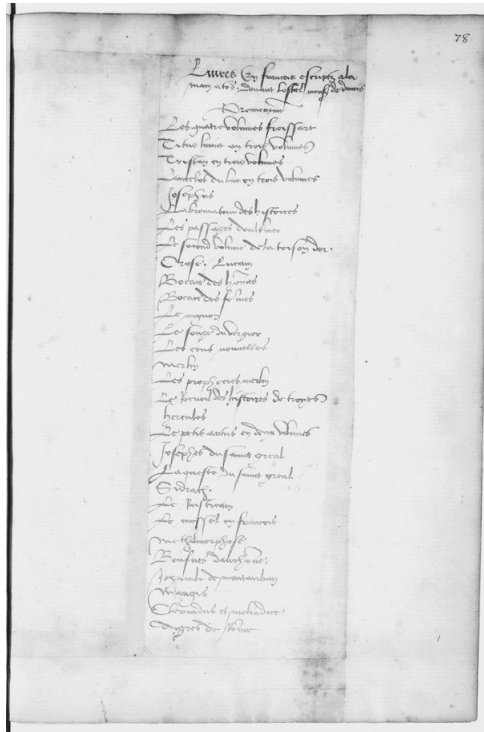 78
Livres En francois escriptz a la
main
Premierement
Les quatre volumes froissart
Titus livius en trois volumes
Tristan en trois volumes
Lancelot du lac en trois volumes
Josephus
La des histoires
Les passages doultremer
Le second volume de la toison dor
Orose. Lucain
Bocace des hommes
Bocace des femmes
Le
Le songe du vergier
Les cent nouvelles
merlin
Les propheties merlin
Le recueil des histoires de troyes
hercules
Le petit artus en deux volumes
Josephes du sainct greal
La queste du sainct greal
Sidrach
Le
Le messel en francois
methamorphose
Beufves danthonne
Regnault de montauban
Maugis
Cleriadus et meliadice